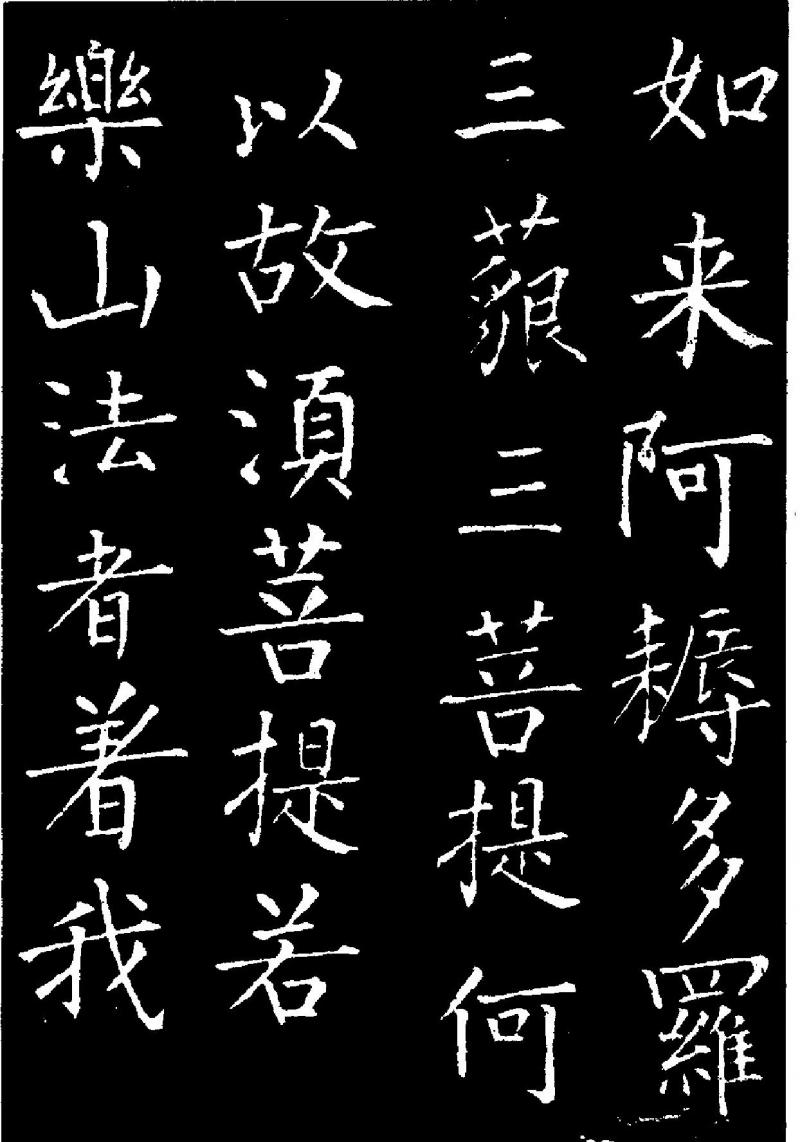 如来阿耨多羅
三藐三菩提何
以故湏菩提若
樂山法者着我